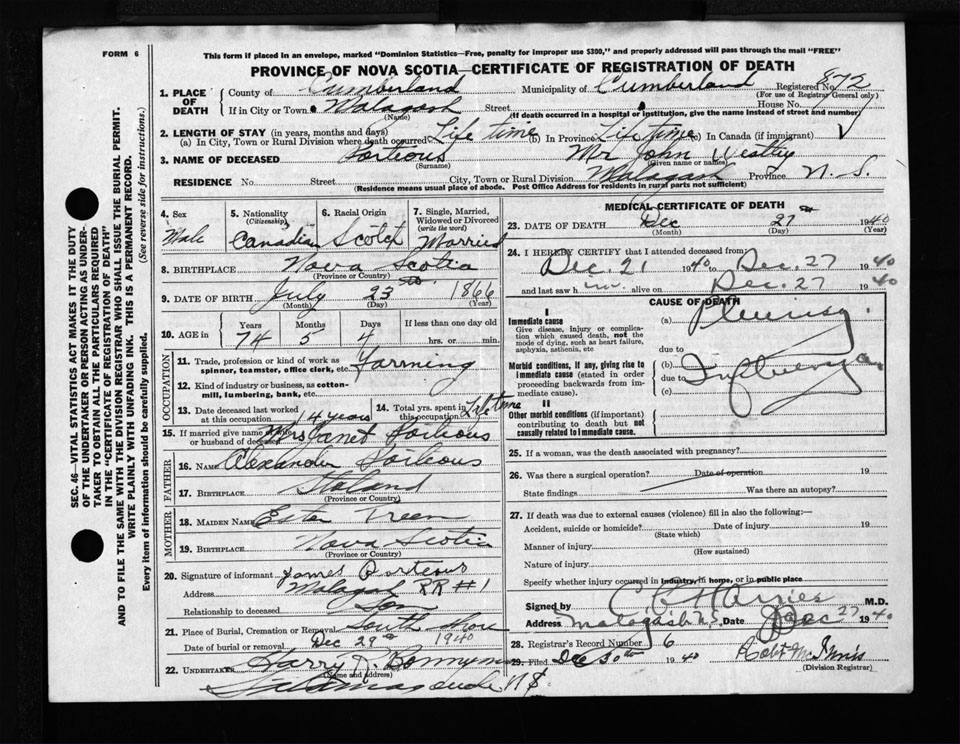 FORM 6
This form if placed in an envelope, marked "Dominion Statistics—Free, penalty for improper use $300," and properly addressed will pass through the mail "FREE"
PROVINCE OF NOVA SCOTIA—CERTIFICATE OF REGISTRATION OF DEATH
SEC. 46—VITAL STATISTICS ACT MAKES IT THE DUTY
OF THE UNDERTAKER OR PERSON ACTING AS UNDER-
TAKER TO OBTAIN ALL THE PARTICULARS REQUIRED
IN THE "CERTIFICATE OF REGISTRATION OF DEATH"
AND TO FILE THE SAME WITH THE DIVISION REGISTRAR WHO SHALL ISSUE THE BURIAL PERMIT.
WRITE PLAINLY WITH UNFADING INK. THIS IS A PERMANENT RECORD.
Every item of information should be carefully supplied. (See reverse side for instructions.)
1. PLACE OF DEATH County of Cumberland Municipality of Cumberland Registered No. 872
(For use of Registrar General only)
If in City or Town Malagash Street House No.
(Name) (If death occurred in a hospital or institution, give the name instead of street and number)
2. LENGTH OF STAY (in years, months and days)
(a) In City, Town or Rural Division where death occurred Life time (b) In Province Life time (c) In Canada (if immigrant)
3. NAME OF DECEASED Porteous Mr John Westley
(Surname) (Given name or names)
RESIDENCE No. Street City, Town or Rural Division Malagash Province N. S.
(Residence means usual place of abode. Post Office Address for residents in rural parts not sufficient)
4. Sex Male
5. Nationality (Citizenship) Canadian
6. Racial Origin Scotch
7. Single, Married, Widowed or Divorced (write the word) Married
8. BIRTHPLACE Nova Scotia
(Province or Country)
9. DATE OF BIRTH July 23 1866
(Month) (Day) (Year)
10. AGE in Years Months Days If less than one day
74 5 4 hrs. or min.
OCCUPATION
11. Trade, profession or kind of work as spinner, teamster, office clerk, etc. Farming
12. Kind of industry or business, as cotton-mill, lumbering, bank, etc.
13. Date deceased last worked at this occupation 14 years
14. Total yrs. spent in this occupation Life time
15. If married give name of wife or husband of deceased Mrs Janet Porteous
FATHER
16. NAME Alexander Porteous
17. BIRTHPLACE
(Province or Country)
MOTHER
18. MAIDEN NAME Ester Treen
19. BIRTHPLACE Nova Scotia
(Province or Country)
20. Signature of informant James Porteous
Address Malagash RR #1
Relationship to deceased Son
21. Place of Burial, Cremation or Removal South Shore
Date of burial or removal Dec 29th 1940
22. UNDERTAKER Harry R. Bonnyman
(Name and address)
Tatamagouche N S
MEDICAL CERTIFICATE OF DEATH
23. DATE OF DEATH Dec 27th 1940
(Month) (Day) (Year)
24. I HEREBY CERTIFY that I attended deceased from
Dec. 21 1940 to Dec. 27 1940
and last saw him alive on Dec. 27 1940
CAUSE OF DEATH
I
Immediate cause
Give disease, injury or complication which caused death, not the mode of dying, such as heart failure, asphyxia, asthenia, etc
(a) Pleurisy
due to
Morbid conditions, if any, giving rise to immediate cause (stated in order proceeding backwards from immediate cause).
(b) Influenza
due to
(c)
II
Other morbid conditions (if important) contributing to death but not causally related to immediate cause.
25. If a woman, was the death associated with pregnancy?
26. Was there a surgical operation? Date of operation 19
State findings Was there an autopsy?
27. If death was due to external causes (violence) fill in also the following:—
Accident, suicide or homicide? Date of injury 19
(State which)
Manner of injury
(How sustained)
Nature of injury
Specify whether injury occurred in industry, in home, or in public place
Signed by M.D.
Address Malagash N.S. Date Dec 27 1940
28. Registrar's Record Number 6
29. Filed Dec 30th 1940 Robt McInnis
(Division Registrar)